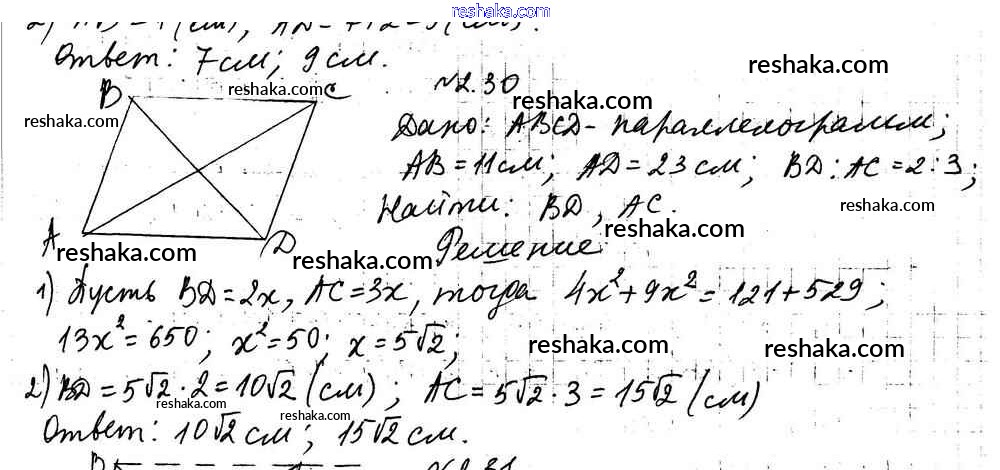 reshaka.com
2) AB = 7 (см), AD = 7+2 = 9 (см).
Ответ: 7см; 9см.
B C №2.30 reshaka.com
reshaka.com reshaka.com reshaka.com
Дано: ABCD - параллелограмм;
AB = 11см; AD = 23см; BD : AC = 2:3;
Найти: BD, AC. reshaka.com
A D Решение
reshaka.com reshaka.com reshaka.com
1) Пусть BD = 2x, AC = 3x, тогда 4x² + 9x² = 121 + 529;
13x² = 650; x² = 50; x = 5√2; reshaka.com reshaka.com
2) BD = 5√2 · 2 = 10√2 (см); AC = 5√2 · 3 = 15√2 (см)
reshaka.com reshaka.com
Ответ: 10√2 см; 15√2 см.
B №2.31